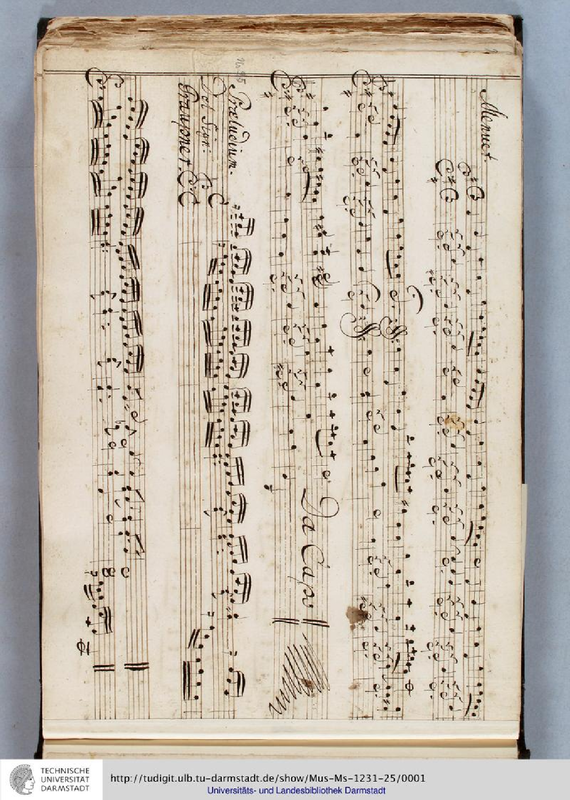 Menuet.
Da Capo
Præludium.
del Sign:
Graupner
TECHNISCHE
UNIVERSITÄT
DARMSTADT
http://tudigit.ulb.tu-darmstadt.de/show/Mus-Ms-1231-25/0001
Universitäts- und Landesbibliothek Darmstadt